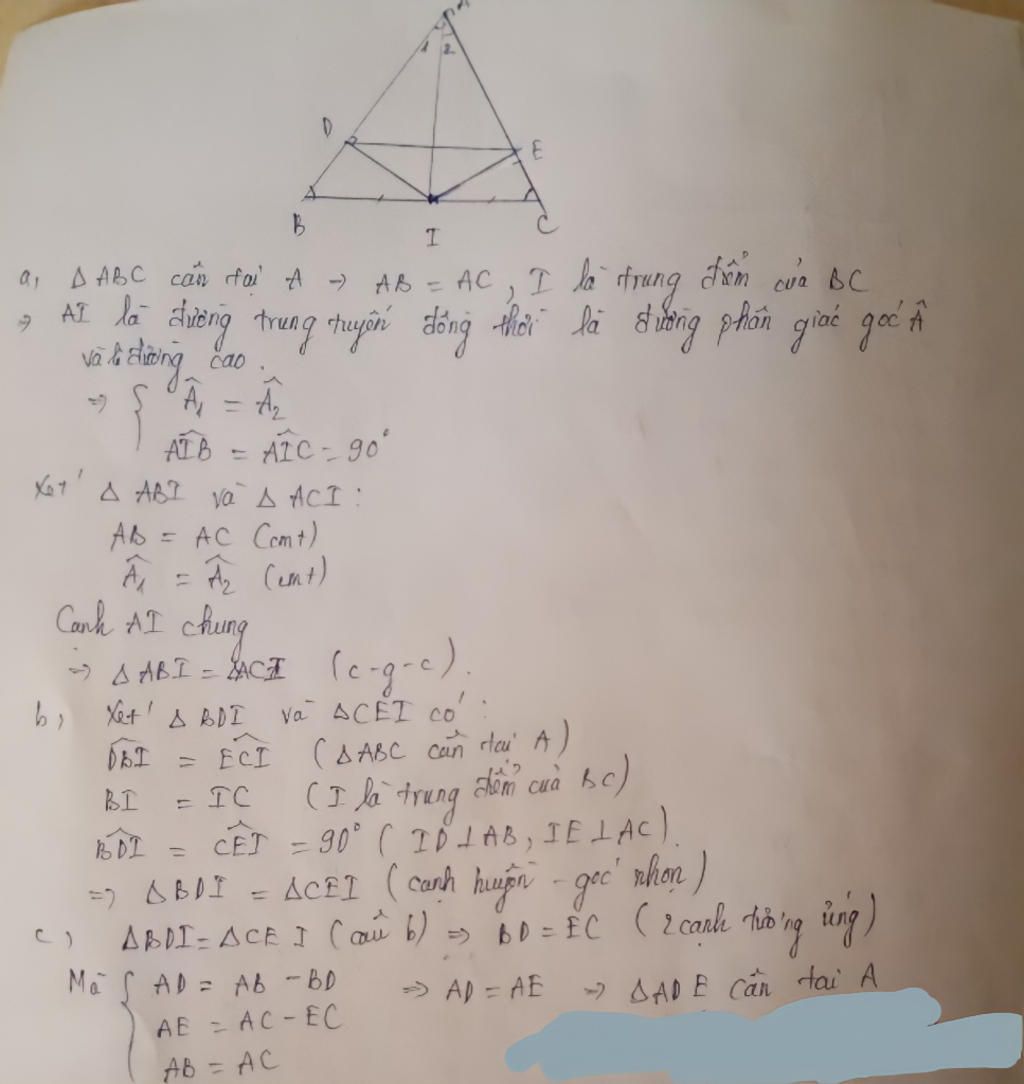 A
1 2
D
E
B
I
C
a, Δ ABC cân tại A → AB = AC, I là trung điểm của BC
⇒ AI là đường trung tuyến đồng thời là đường phân giác góc Â
và là đường cao.
⇒ { Â₁ = Â₂
AIB^ = AIC^ = 90°
Xét Δ ABI và Δ ACI :
AB = AC (cmt)
Â₁ = Â₂ (cmt)
Cạnh AI chung
⇒ Δ ABI = ΔACI (c-g-c).
b, Xét Δ BDI và ΔCEI có :
DBI^ = ECI^ (ΔABC cân tại A)
BI = IC (I là trung điểm của BC)
BDI^ = CEI^ = 90° (ID⊥AB, IE⊥AC).
⇒ ΔBDI = ΔCEI (cạnh huyền - góc nhọn)
c, ΔBDI = ΔCEI (câu b) ⇒ BD = EC (2 cạnh tương ứng)
Mà { AD = AB - BD ⇒ AD = AE ⇒ ΔADE cân tại A
AE = AC - EC
AB = AC